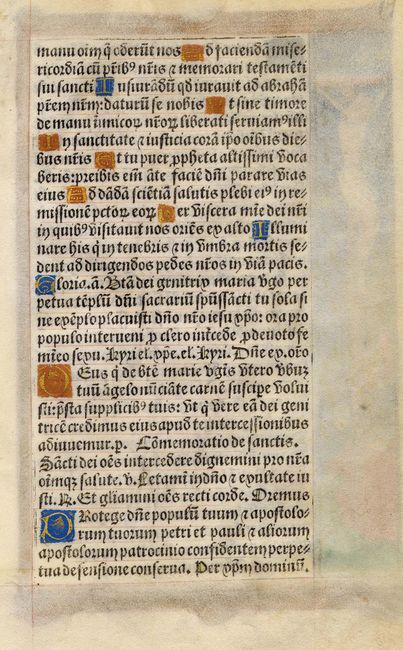 manu oīm q̄ oderūt nos Ad faciendā mise⸗
ricordiā cū pr̄ib⁹ nr̄is ⁊ memorari testamēti
sui sancti Iusiurādū qđ iurauit ad abrahā
pr̄em nr̄m: daturū se nobis Ut sine timore
de manu inimicoꝝ nr̄oꝝ liberati seruiam⁹ illi
In sanctitate ⁊ iusticia corā ip̄o oībus die⸗
bus nr̄is Et tu puer ꝓpheta altissimi voca
beris: preibis em̄ āte faciē dn̄i parare vias
eius Ad dādā sciētiā salutis plebi ei⁹ in re⸗
missionē pctōꝝ eoꝝ Per viscera mīe dei nr̄i
in quib⁹ visitauit nos oriēs ex alto Illumi
nare his q̄ in tenebris ⁊ in vmbra mortis se⸗
dent ad dirigendos pedes nr̄os in viā pacis.
Gloria. ā. Btā dei genitrix maria v̓go per
petua tēplū dn̄i sacrariū spūssācti tu sola si
ne exēplo placuisti dn̄o nr̄o iesu xp̄o: ora pro
populo interueni ꝓ clero intc̄ede ꝓ deuoto fe
mīeo sexu. Kyri el. xp̄e. el. Kyri. Dn̄e ex. orō
Deus q̄ de btē marie v̓gis vtero v̓buȝ
tuū āgelo nūciāte carnē suscipe̓ volui
sti: p̄sta supplicib⁹ tuis: vt q̄ vere eā dei geni
tricē credimus eius apud te intercessionibus
adiuuemur. p. Cōmemoratio de sanctis.
Sācti dei oēs intercedere dignemini pro nr̄a
oīmqȝ salute. v. Letamī in dn̄o ⁊ exultate iu
sti. ꝶ. Et gliamini oēs recti corde. Oremus
Protege dn̄e populū tuum ⁊ apostolo⸗
rum tuorum petri et pauli ⁊ aliorum
apostolorum patrocinio confidentem perpe⸗
tua defensione conserua. Per xp̄m dominū.